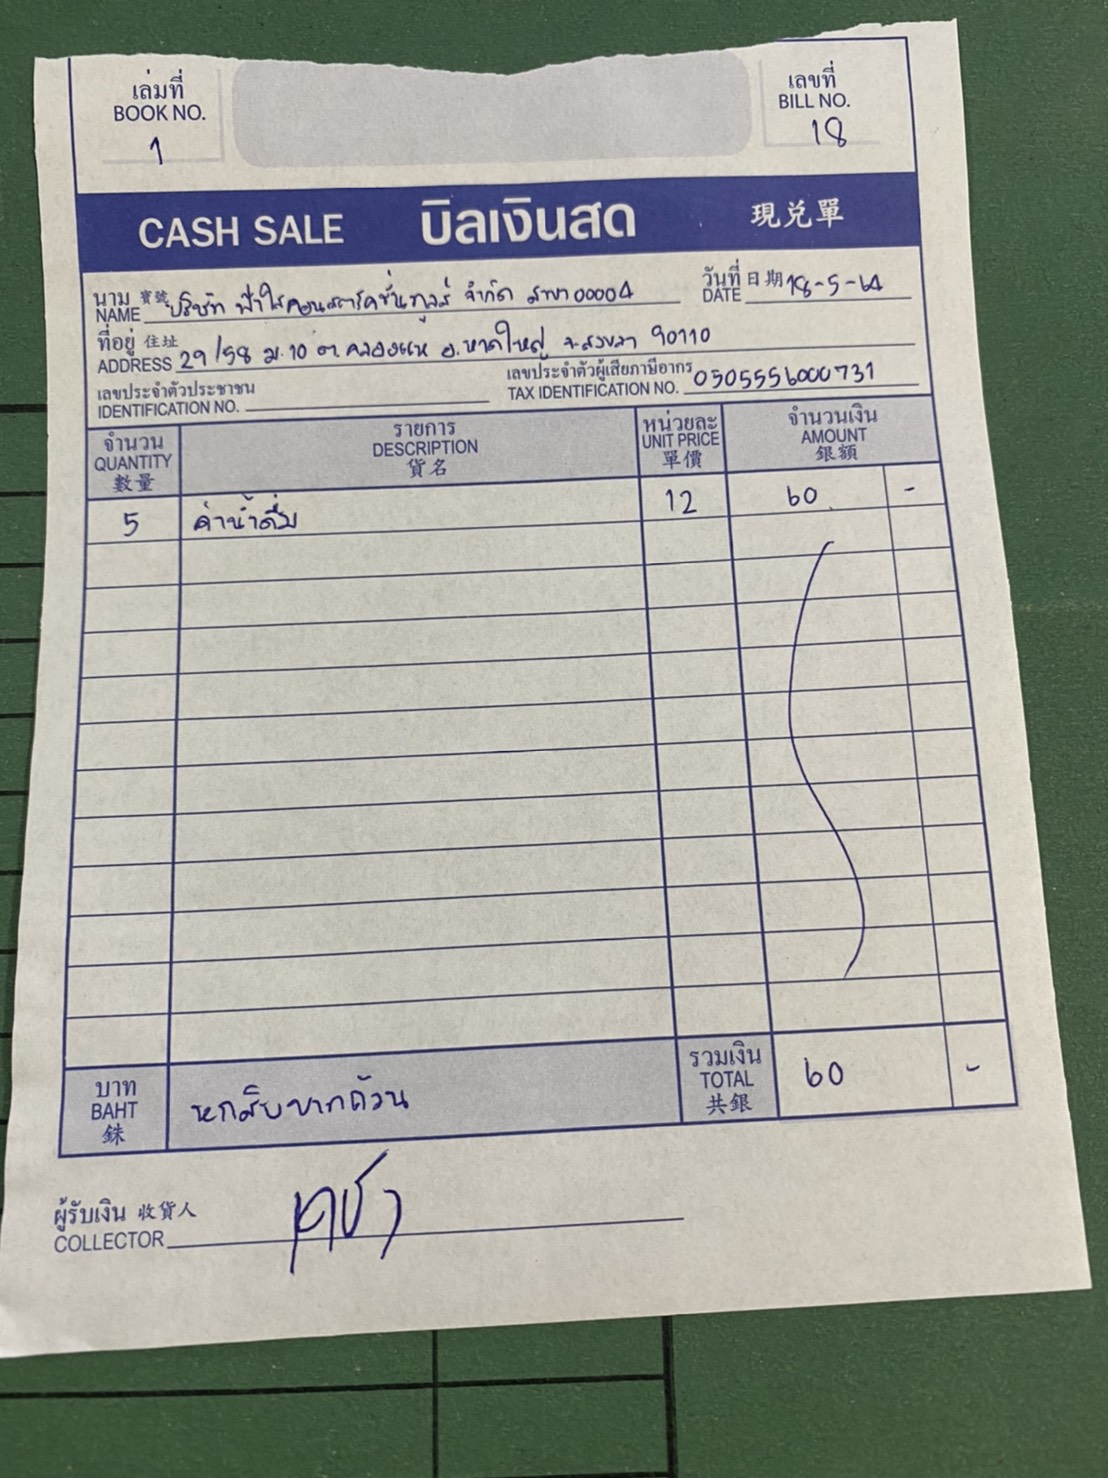 เล่มที่
BOOK NO.
1
เลขที่
BILL NO.
18
CASH SALE บิลเงินสด 現兌單
นาม 寶號 NAME บริษัท ฟ้าใสคอนสตรัคชั่นทูลส์ จำกัด สาขา 00004
วันที่ 日期 DATE 18-5-64
ที่อยู่ 住址 ADDRESS 29/58 ม.10 ต.คลองแห อ.หาดใหญ่ จ.สงขลา 90110
เลขประจำตัวประชาชน
IDENTIFICATION NO.
เลขประจำตัวผู้เสียภาษีอากร
TAX IDENTIFICATION NO. 0505556000731
จำนวน QUANTITY 數量
รายการ DESCRIPTION 貨名
หน่วยละ UNIT PRICE 單價
จำนวนเงิน AMOUNT 銀額
5 ค่าน้ำดื่ม 12 60 -
บาท BAHT 銖
หกสิบบาทถ้วน
รวมเงิน TOTAL 共銀
60 -
ผู้รับเงิน 收貨人
COLLECTOR